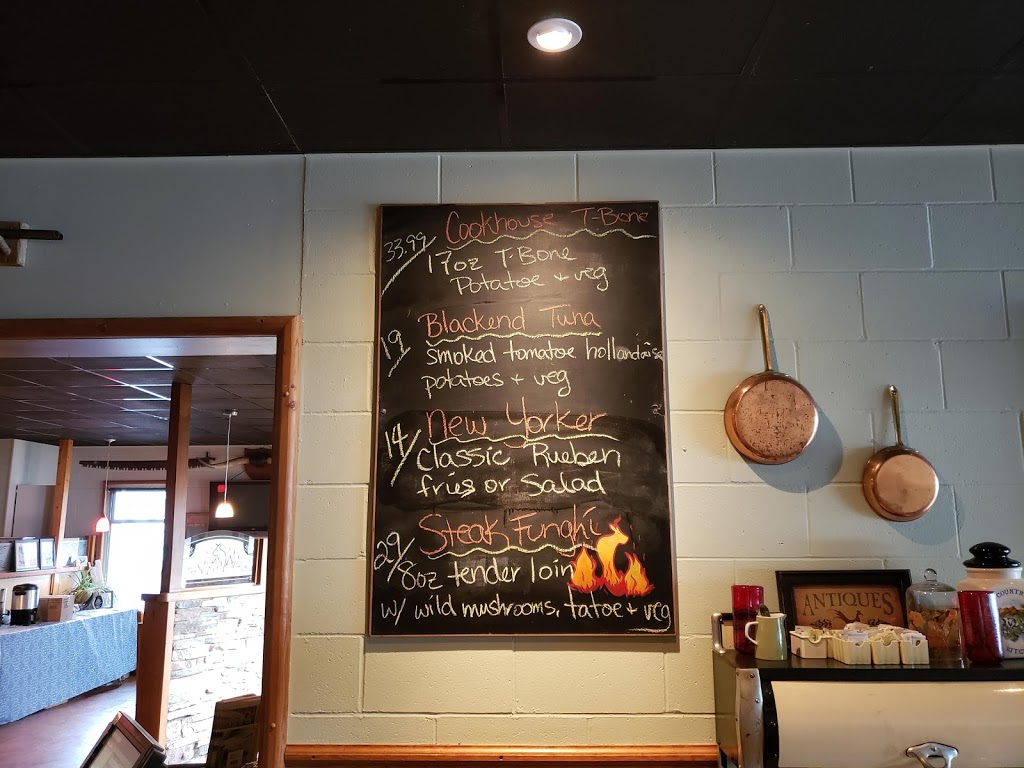 Cookhouse T-Bone
33.99/
17oz T-Bone
Potatoe + veg
Blackend Tuna
19/
smoked tomatoe hollandaise
potatoes + veg
New Yorker
14/
Classic Rueben
fries or Salad
Steak Funghi
29/
8oz tender loin
w/ wild mushrooms, tatoe + veg
ANTIQUES
COUNTRY